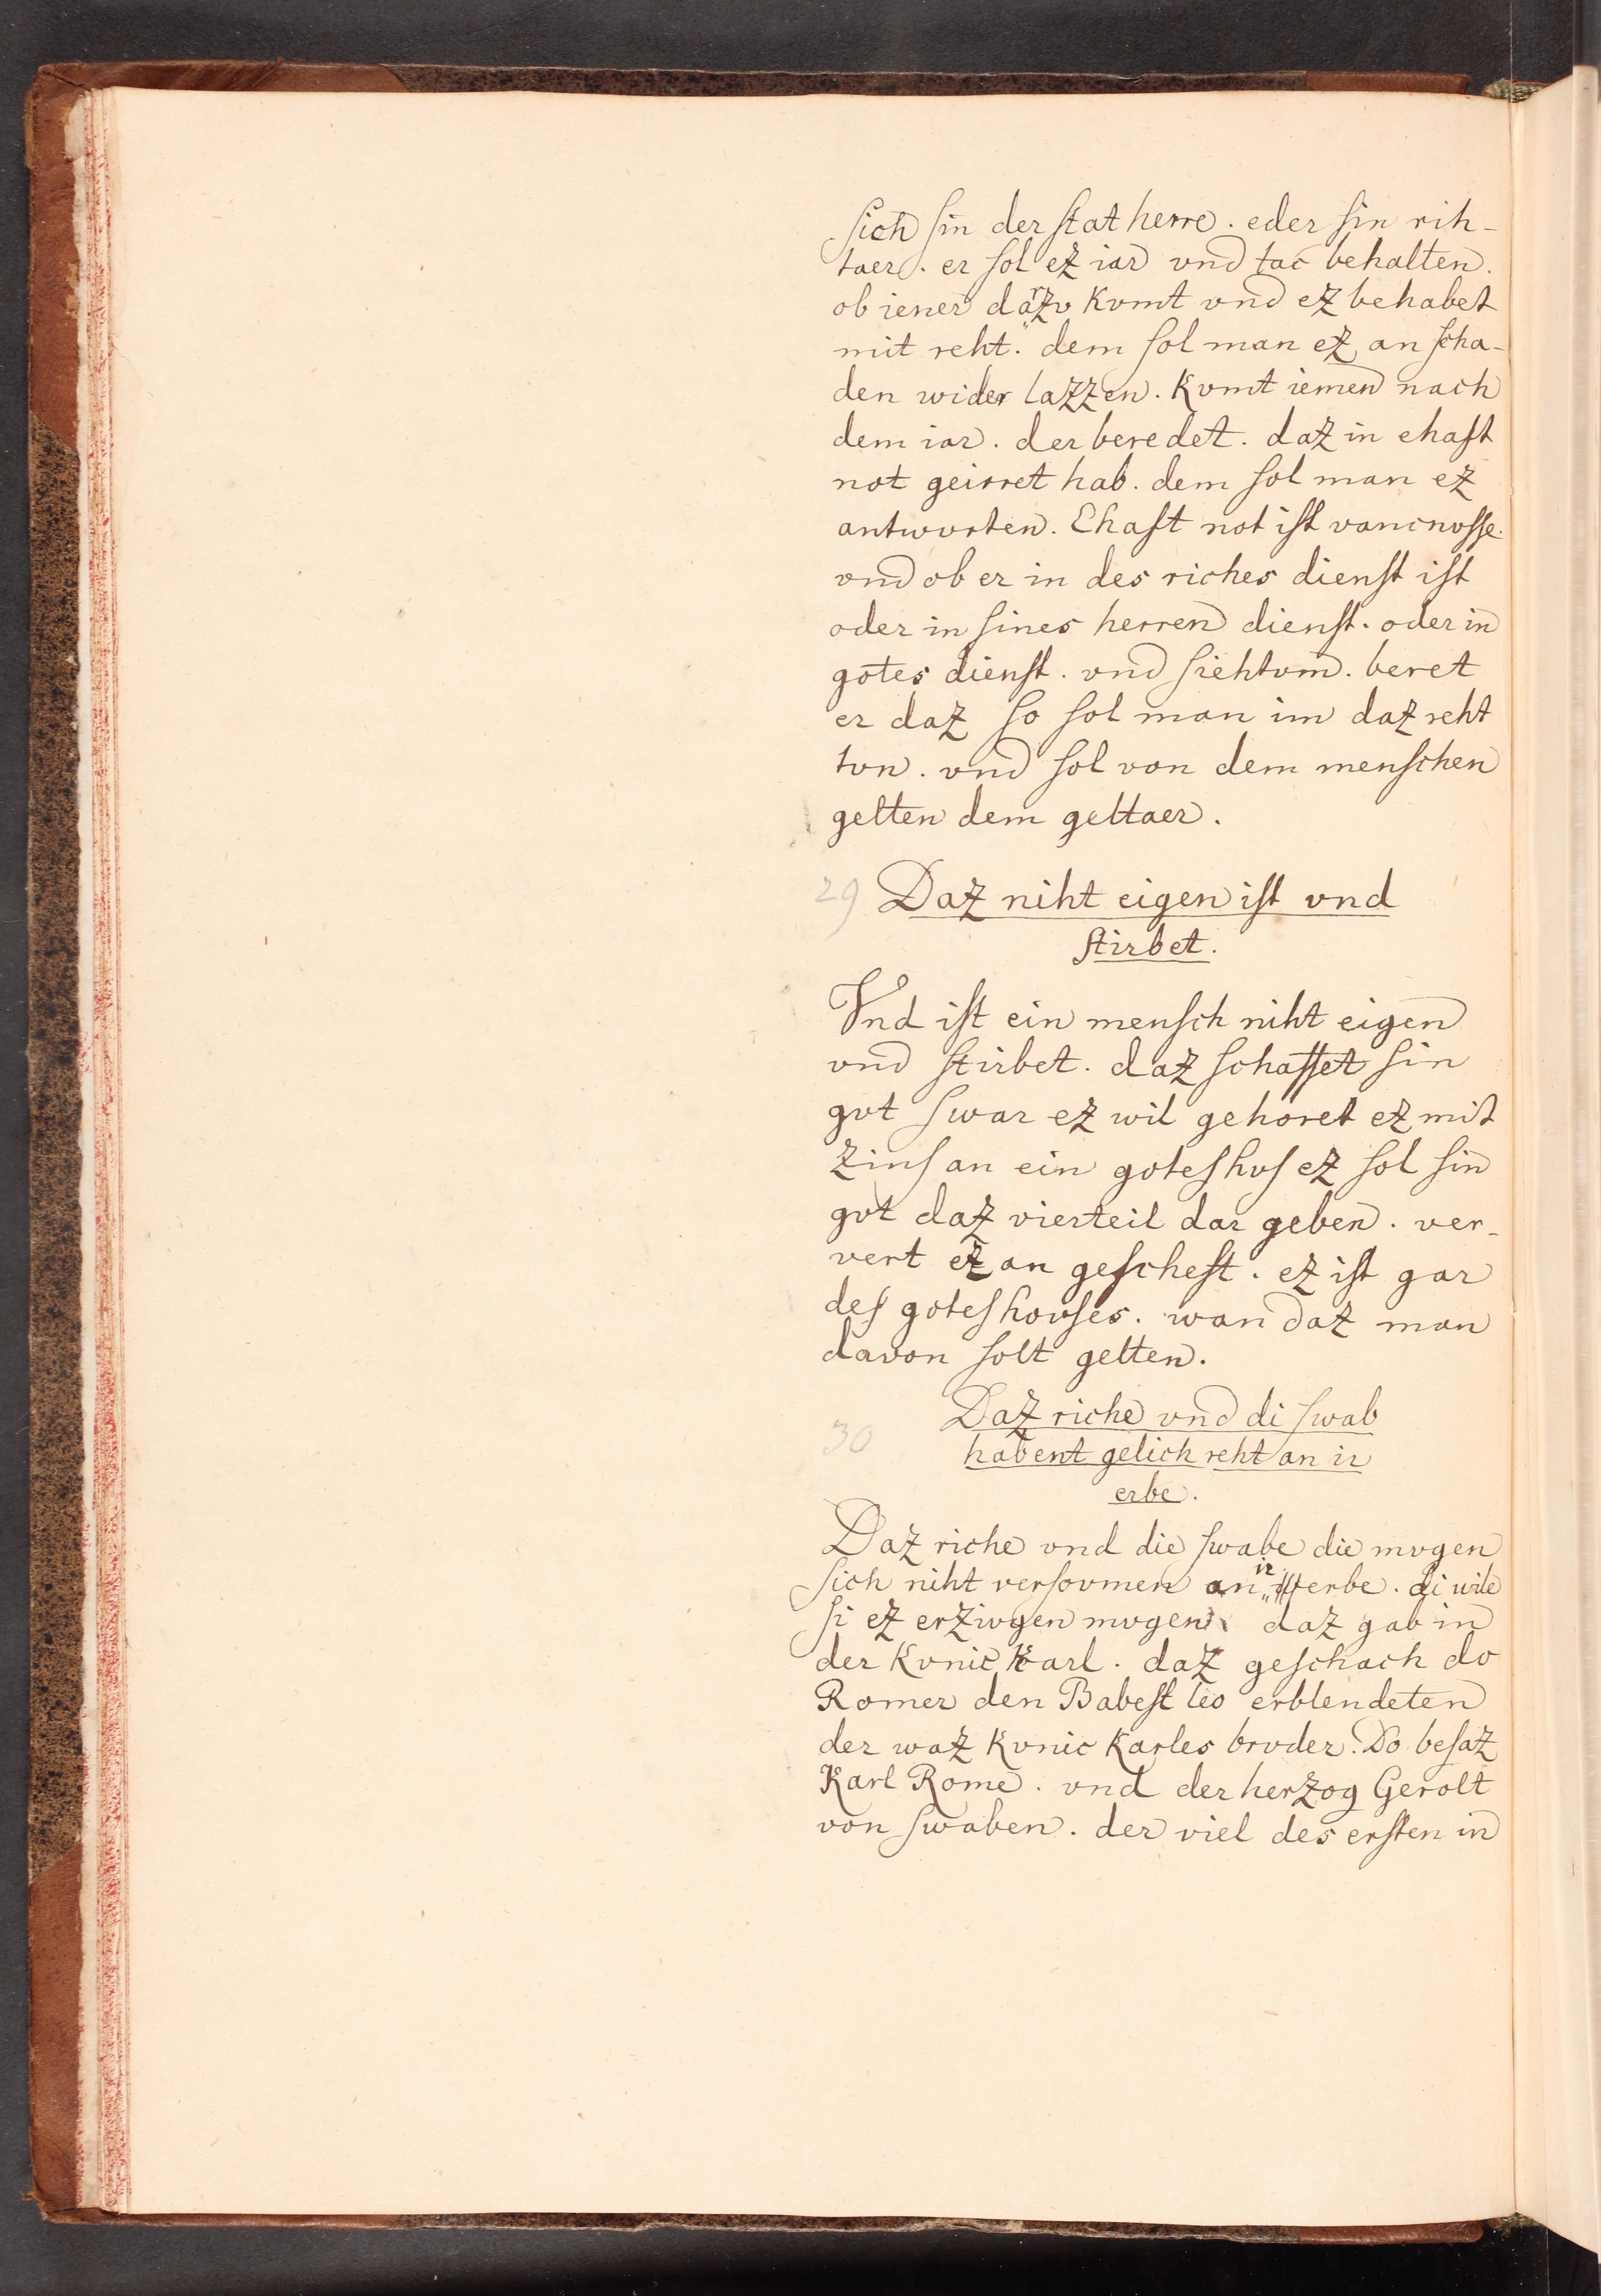 ſich ſin der ſtat herre. eder ſin rih-
taer. er ſol ez iar vnd tac behalten.
ob iener darzv kvmt vnd ez behabet
mit reht. dem ſol man ez an ſcha-
den wider lazzen. kvmt iemen nach
dem iar. der beredet. daz in ehaft
not geirret hab. dem ſol man ez
antwvrten. Ehaft not iſt vancnvſſe.
vnd ob er in des riches dienſt iſt
oder in ſines herren dienſt. oder in
gotes dienſt. vnd ſiehtvm. beret
er daz ſo ſol man im daz reht
tvn. vnd ſol von dem menſchen
gelten dem geltaer.
29 Daz niht eigen iſt vnd
ſtirbet.
Vnd iſt ein menſch niht eigen
vnd ſtirbet. daz ſchaffet ſin
gvt ſwar ez wil gehoret ez mit
zinſ an ein goteſhvſ ez ſol ſin
gvt daz vierteil dar geben. ver-
vert ez an geſcheft. ez iſt gar
deſ goteſhovſes. wan daz man
davon ſolt gelten.
30 Daz riche vnd di ſwab
habent gelich reht an ir
erbe.
Daz riche vnd die ſwabe die mvgen
ſich niht verſovmen an ir erbe. di wile
ſi ez erzivgen mvgen daz gab in
der kvnic Karl. daz geſchach do
Romer den Babeſt leo erblendeten
der waz kvnic karles brvder. Do beſaz
Karl Rome. vnd der herzog Gerolt
von ſwaben. der viel des erſten in